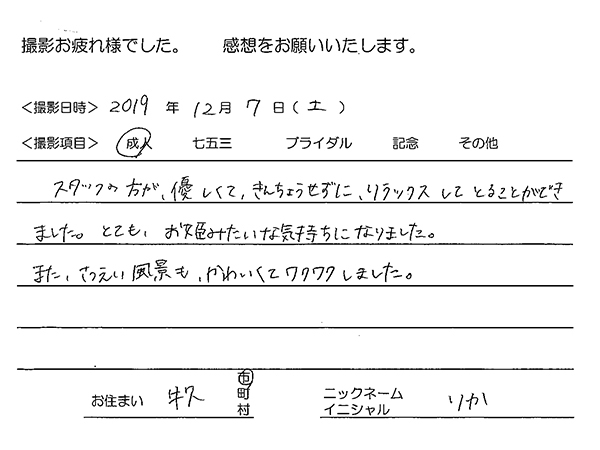 撮影お疲れ様でした。 感想をお願いいたします。
<撮影日時> 2019 年 12月 7 日(土)
<撮影項目> 成人 七五三 ブライダル 記念 その他
スタッフの方が、優しくて、きんちょうせずに、リラックスしてとることができ
ました。とても、お姫みたいな気持ちになりました。
また、さつえい風景も、かわいくてワクワクしました。
お住まい 牛久 市町村 ニックネーム イニシャル りか